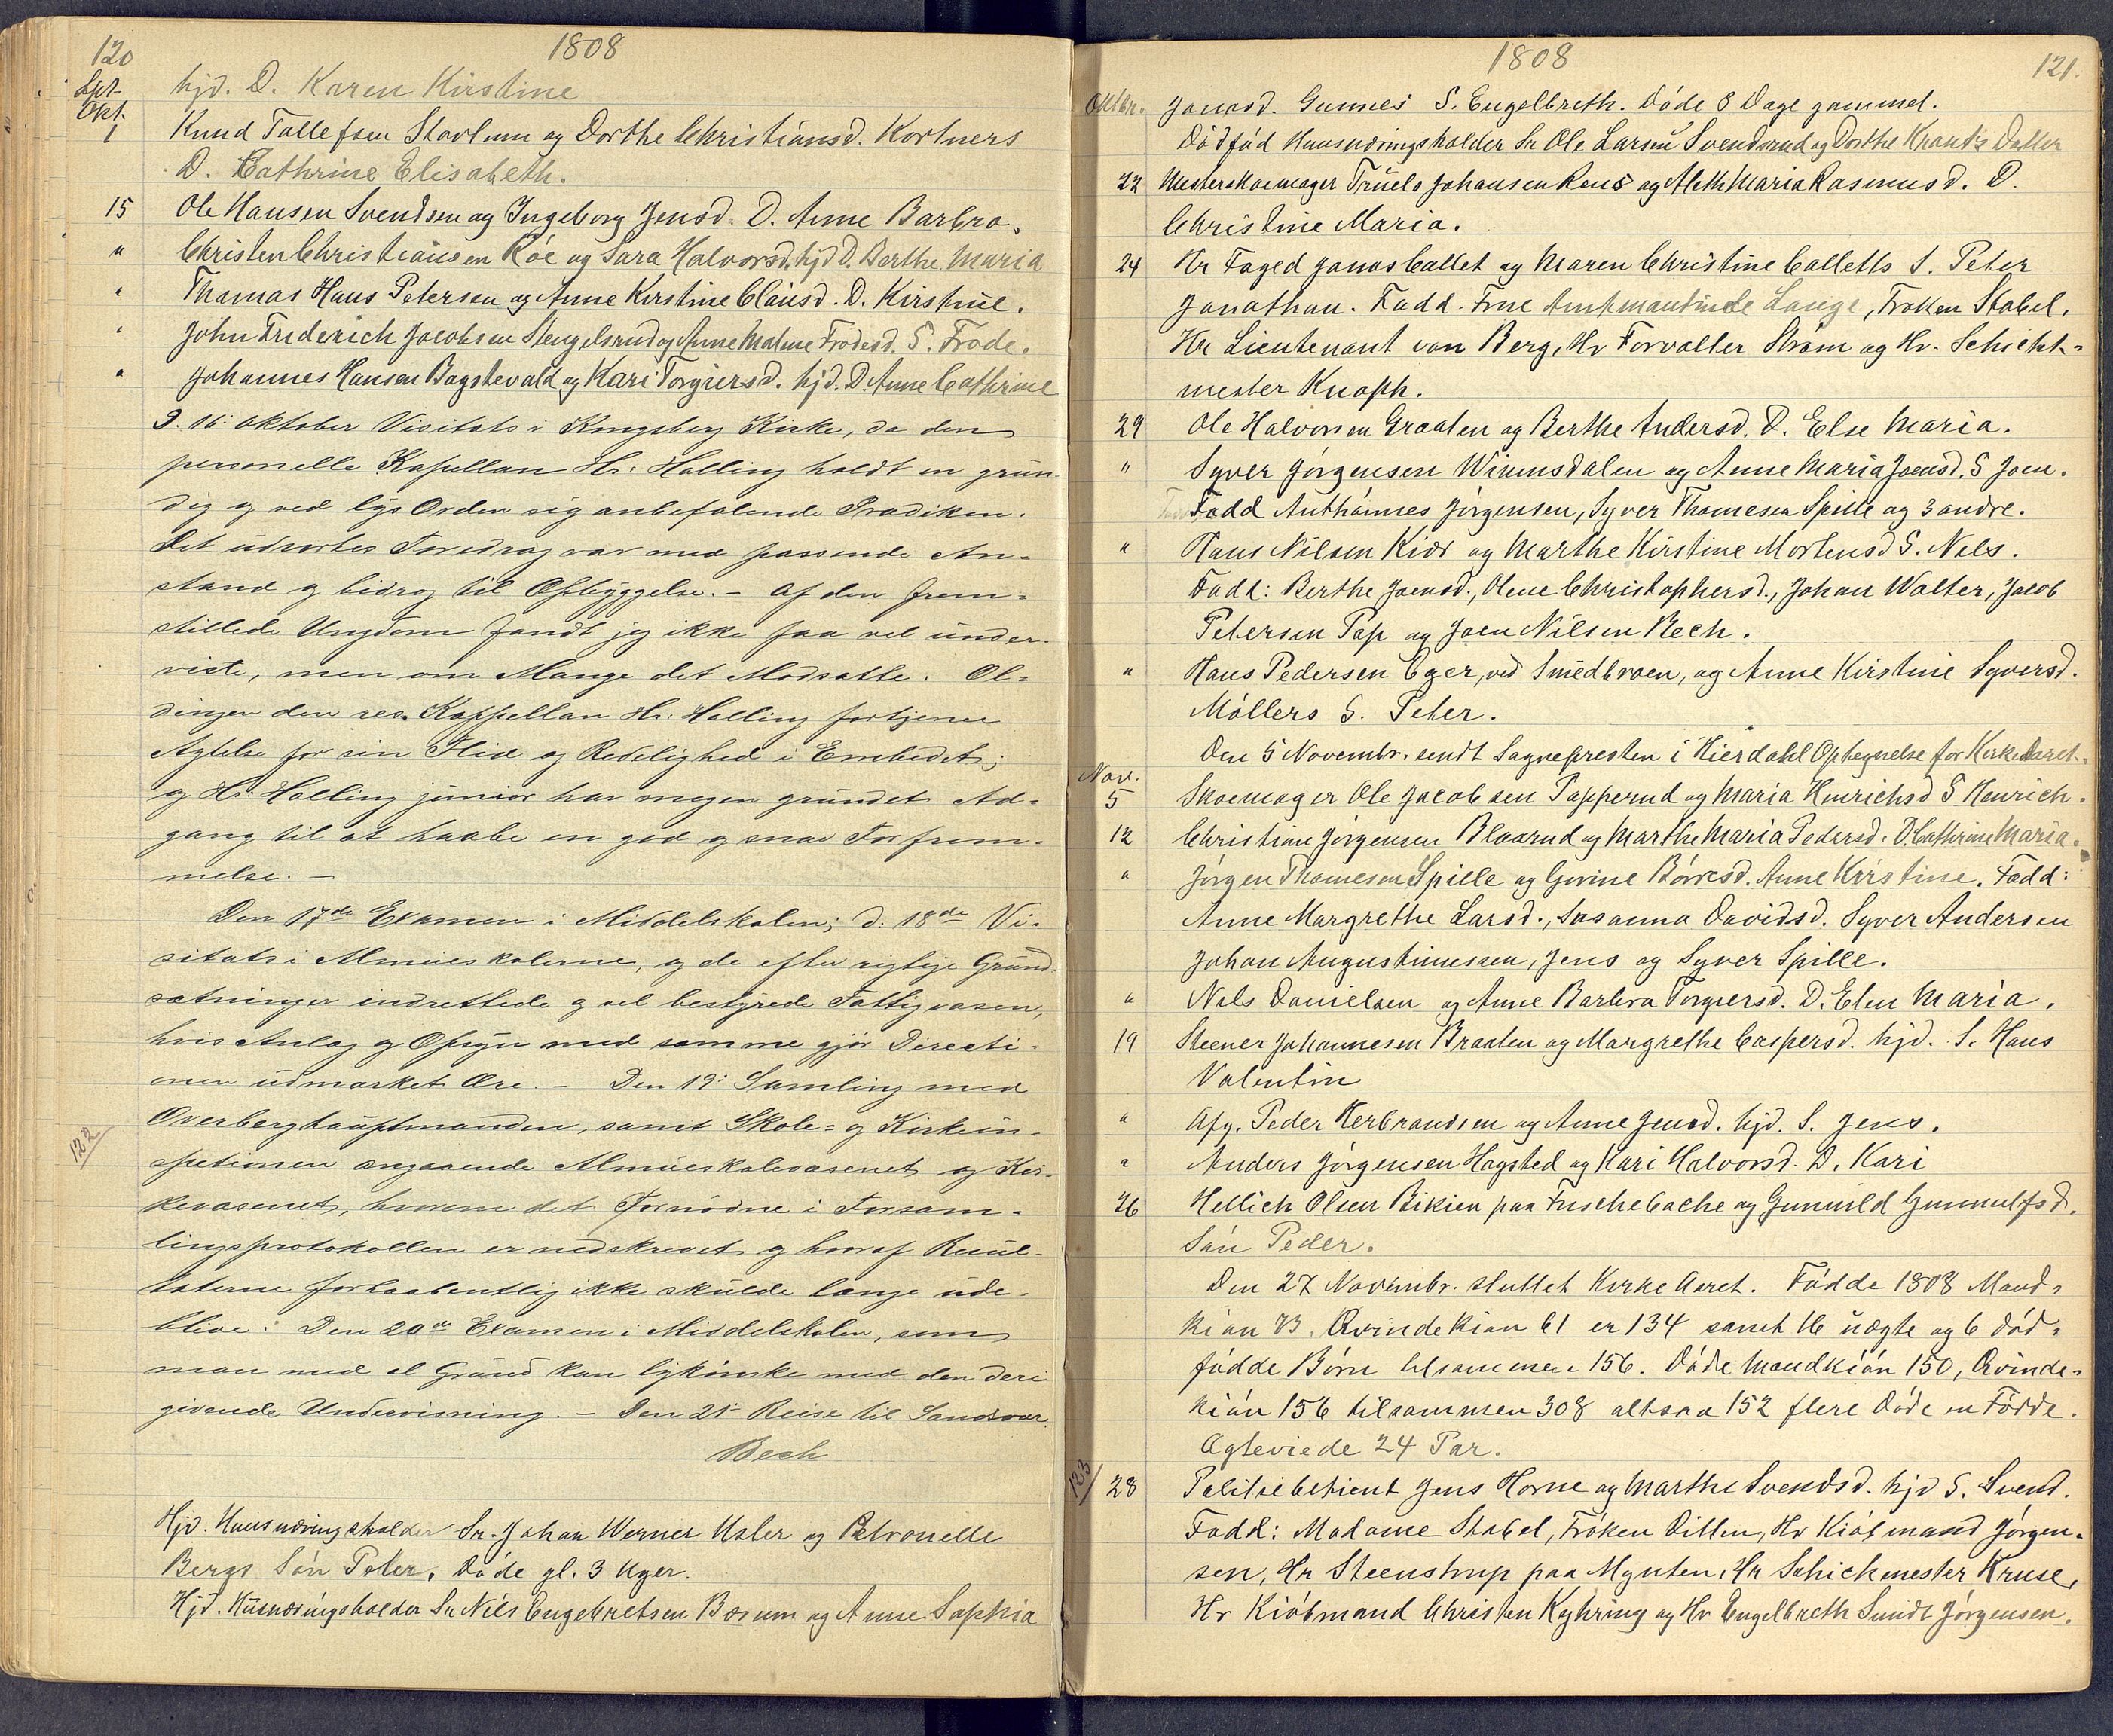 120
1808
Spt. hjd. D. Karen Kirstine
Okt.
1 Knud Tallefsen Stavlum og Dorthe Christiansd. Kortners
D. Cathrine Elisabeth.
15 Ole Hansen Svendsen og Ingeborg Jensd. D. Anne Barbro.
" Christen Christiansen Róe og Sara Halvorsd. hjd D. Berthe Maria
" Thomas Hans Petersen og Anne Kirstine Clausd. D. Kirstine.
" John Friderich Jacobsen Stengelsrud og Anne Malene Frodesd. S. Frode.
" Johannes Hansen Bagstevold og Kari Torgiersd. hjd. D. Anne Cathrine
D. 16: Oktober Visitats i Kongsberg Kirke, da den
personelle Kapellan Hr. Halling holdt en grun-
dig og ved lys Orden sig anbefalende Prædiken.
Det udvortes Foredrag var med passende An-
stand og bidrog til Opbyggelse. - Af den frem-
stillede Ungdom fandt jeg ikke faa vel under-
viste, men om Mange det Modsatte. Ol-
dingen den res. Kappellan Hr. Halling fortjener
Agtelse for sin Flid og Redelighed i Embedet;
og Hr. Halling junior har megen grundet Ad-
gang til at haabe en god og snar Forfrem-
melse. -
Den 17de Examen i Middelskolen; d. 18de Vi-
sitats i Almueskolerne, og de efter rigtige Grund-
sætninger indrettede og vel bestyrede Fattigvæsen,
hvis Anlæg og Opsyn med samme gjör Directi-
onen udmærket Ære. - Den 19: Samling med
Overberghauptmanden, samt Skole- og Kirkein-
122
spetionen angaaende Almueskolevæsenet og Kir-
kevæsenet, hvorom det Fornödne i Forsam-
lingsprotokollen er nedskrevet og hvoraf Resul-
taterne forhaabentlig ikke skulde længe ude-
blive. Den 20de Examen i Middelskolen, som
man med al Grund kan lykönske med den deri
givende Undervisning. - Den 21: Reise til Sandsvær.
Bech
Hjd. Husnæringsholder Sr. Johan Werner Usler og Petronelle
Bergs Sön Peter. Döde gl. 3 Uger.
Hjd. Husnæringsholder Sr Nils Engebretsen Bærum og Anne Sophia
1808
121.
Oktbr. Jonasd. Gunnes S. Engelbreth. Döde 8 Dage gammel.
Dödfód Huusnæringsholder Sr Ole Larsen Svendsrud og Dorthe Krants Datter
22 Mesterskoemager Truels Johansen Rens og Aleth Maria Rasmusd. D.
Christine Maria.
24 Hr Foged Jonas Collet og Maren Christine Colletts S. Peter
Jonathan. Fadd. Frue Amtmandinde Lange, Frøken Stabel,
Hr Lieutenant von Berg, Hr Forvalter Ström og Hr. Schicht-
mester Knoph.
29 Ole Halvorsen Graaten og Berthe Andersd. D. Else Maria.
" Syver Jörgensen Wiumsdalen og Anne Maria Joensd. S Joen.
Fadd Anthönnes Jörgensen, Syver Thomesen Spille og 3 andre.
" Hans Nilsen Kiör og Marthe Kirstine Mortensd S. Nels.
Fadd: Berthe Joensd., Olene Christophersd., Johan Walter, Jacob
Petersen Pap og Joen Nilsen Bech.
" Hans Pedersen Eger, ved Smedbroen, og Anne Kirstine Syversd.
Möllers S. Peter.
Den 5 Novembr. sendt Sognepresten i Hierdahl Optegnelse for Kirkeaaret.
Nov.
5 Skoemager Ole Jacobsen Tapperud og Maria Henrichsd S Henrich.
12 Christian Jörgensen Blaarud og Marthe Maria Pedersd. D. Cathrine Maria.
" Jörgen Thomesen Spille og Gorine Börresd. Anne Kirstine. Fadd:
Anne Margrethe Larsd., Susanna Davidsd. Syver Andersen
Johan Augustinussen, Jens og Syver Spille.
" Nels Danielsen og Anne Barbra Torgiersd. D. Elen Maria.
19 Steener Johannesen Braaten og Margrethe Caspersd. hjd. S. Hans
Valentin
" Afg. Peder Herbrandsen og Anne Jensd. hjd. S. Jens.
" Anders Jörgensen Hagsted og Kari Halvorsd. D. Kari
26 Hellich Olsen Bikien paa Fuschebache og Gunnild Gunnulfsd.
Sön Peder.
Den 27 Novembr. sluttet Kirke Aaret. Födde 1808 Mand-
kiön 73. Qvindekiön 61 er 134 samt 16 uægte og 6 död-
födde Börn tilsammen 156. Döde Mandkiön 150, Qvinde-
kiön 156 tilsammen 308 altsaa 152 flere Döde en Födde.
Ægteviede 24 Par.
123
28 Politiebetient Jens Horne og Marthe Svendsd. hjd S. Svend.
Fadd: Madame Stabel, Fröken Ditten, Hr Kiöbmand Jörgen-
sen, Hr Steenstrup paa Mynten, Hr Schichmester Kruse,
Hr Kiöbmand Christen Kyhring og Hr Engelbreth Sundt Jörgensen.